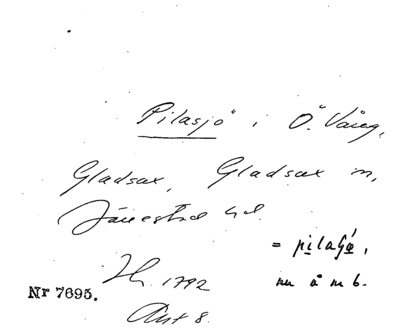 Pilasjö i Ö. Vång,
Gladsax, Gladsax sn,
Järrestad hd.
= pilaſjø,
nu å m b.
H. 1792
Nr 7695.
Akt 8.